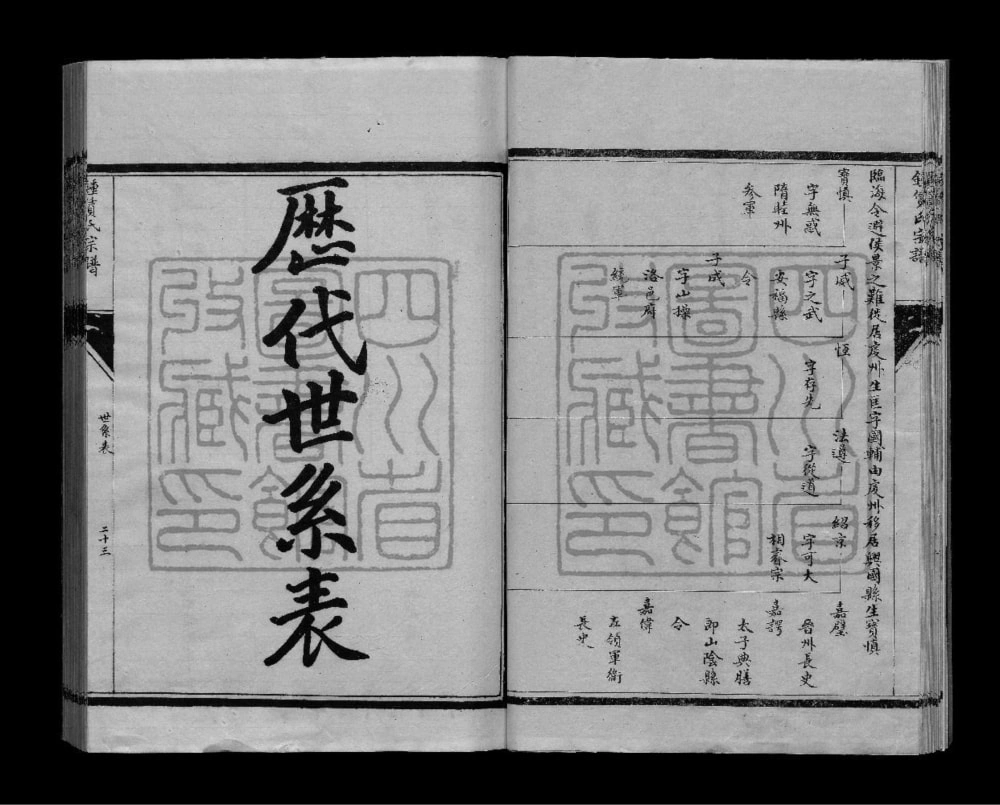 臨海令避侯景之難從居虔州生匡字國輔由虔州移居興國縣生寶慎
寶慎
字無惑
隋眭州
參軍
子威
字之武
安福縣
令
子成
字山操
洛邑府
統軍
恆
字存先
法遵
字從道
紹京
字可大
相睿宗
嘉璧
晉州長史
嘉諤
太子典膳
郎山陰縣
令
嘉偉
左領軍衛
長史
歷代世系表
鍾賁氏宗譜
世系表
二十三
四川省圖書館攷藏印
四川省圖書館攷藏印